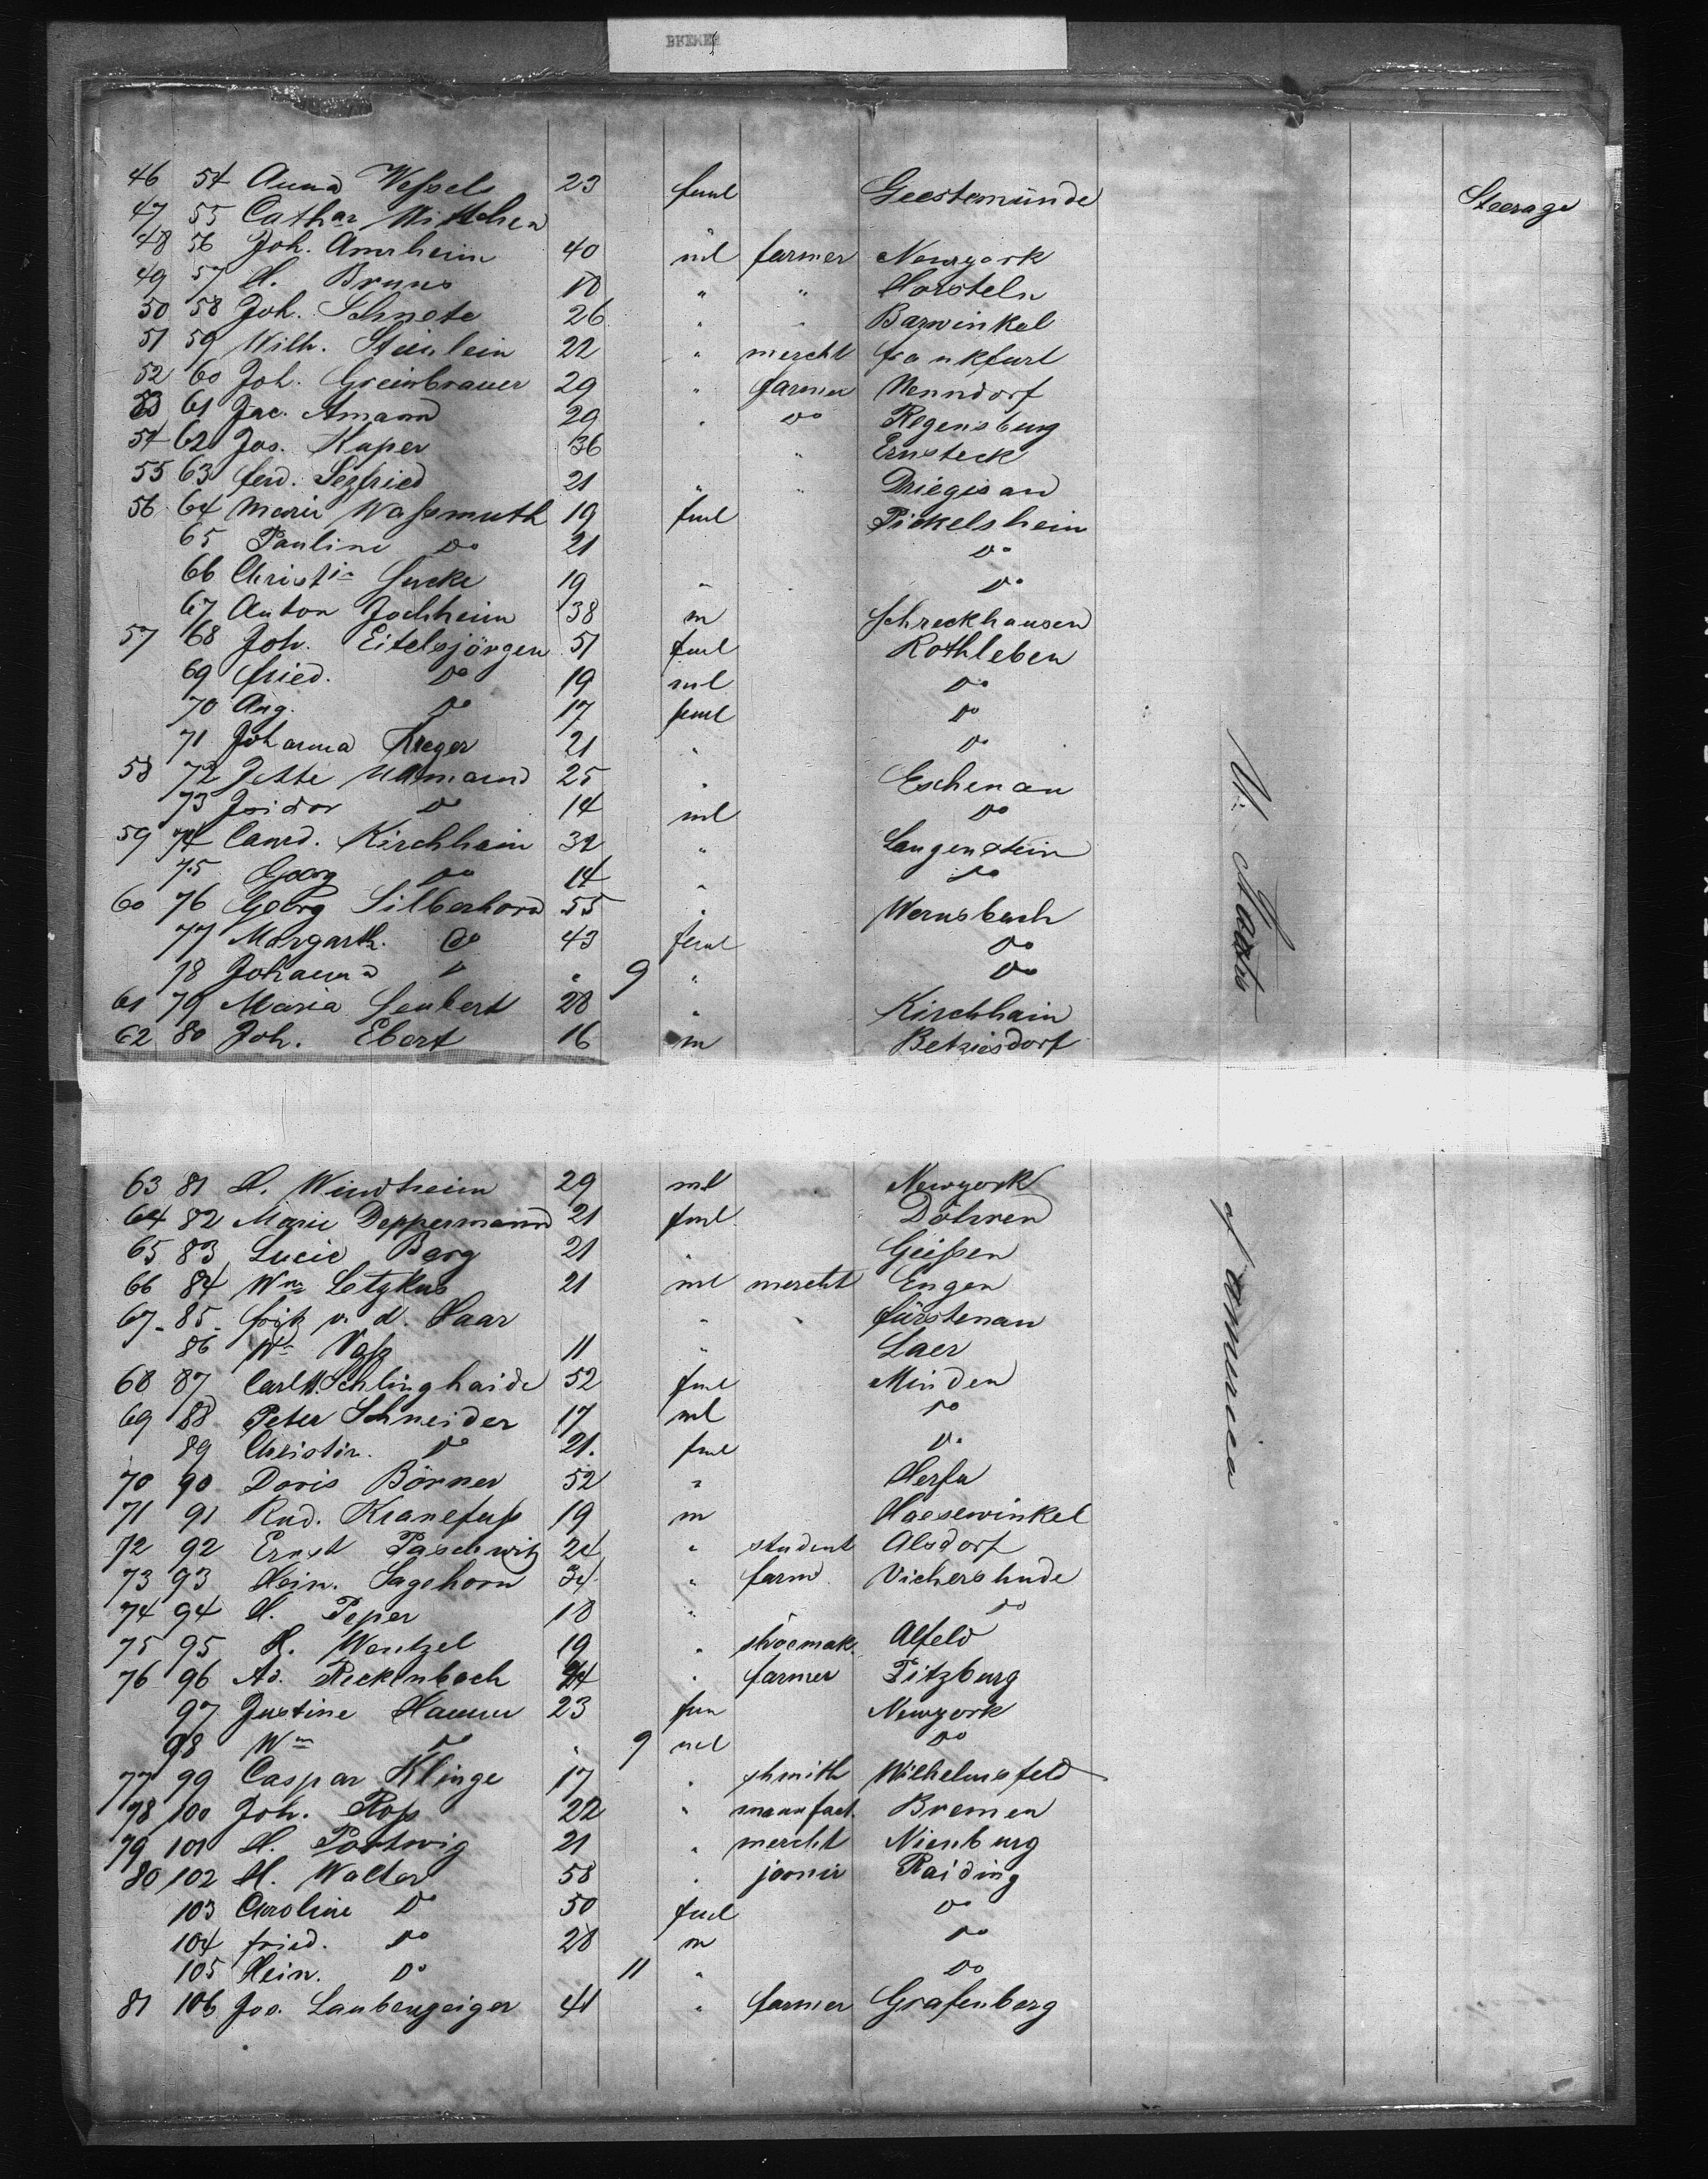 BREMEN
46 54 Anna Weſsels 23 feml Geestemünde Steerage
47 55 Cathar Wittchen "
48 56 Joh. Amrheim 40 ml farmer Newyork
49 57 H. Bruns 18 " " Horsteln
50 58 Joh. Schnete 26 " " Barwinkel
51 59 Wilh. Steinlein 22 " mercht frankfurt
52 60 Joh. Greinbrauer 29 " farmer Nenndorf
53 61 Jac. Amann 29 " do Regensburg
54 62 Jos. Kaper 36 " Ernsteck
55 63 ferd. Segfried 21 " " Driegisan
56 64 Marie Waſsmuth 19 fml Pickelsheim
65 Pauline do 21 do
66 Christin Gercke 19 " do
67 Anton Jochheim 38 m Schreckhausen
57 68 Joh. Eitelsjörgen 51 fml Rothleben
69 fried. do 19 ml do
70 Aug. do 17 feml do
71 Johanna Kreger 21 " do
58 72 Jette Ullmann 25 " Eschenau
73 Isidor do 14 ml do
59 74 Conrd. Kirchhain 32 " Langenstein
75 Georg do 14 " do
60 76 Georg Silberhorn 55 " Wernsbach
77 Margarth. do 43 feml do
78 Johanna " " 9 " do
61 79 Maria Seubert 28 " Kirchhain
62 80 Joh. Ebert 16 m Betziesdorf
U. States
63 81 H. Windheim 29 ml Newyork
64 82 Marie Deppermann 21 fml Döhren
65 83 Lucie Berg 21 " Gieſsen
66 84 Wm Letzkus 21 ml mercht Engen
67 85 fritz v. d. Haar " " fürstenau
86 Wm Voſs 11 " Laer
68 87 Carl W. Schlinghaide 52 fml Minden
69 88 Peter Schneider 17 ml do
89 Christin. do 21. fml do
70 90 Doris Börner 52 " Herfa
71 91 Rud. Kranefuſs 19 m Haesewinkel
72 92 Ernst Paschwitz 24 " student Alsdorf
73 93 Hein. Sagehorn 34 " farm Vichershude
74 94 H. Peper 18 " do
75 95 H. Wentzel 19 " shoemak. Alfeld
76 96 Ad. Reckenbach 24 " farmer Pitzburg
97 Justine Hammer 23 fem Newyork
98 Wm do " 9 ml do
77 99 Caspar Klinge 17 " shmith Wilhelmsfeld
78 100 Joh. Roſs 22 " manufact. Bremen
79 101 H. Portwig 21 " mercht Nienburg
80 102 H. Walter 58 " joonir Raiding
103 Caroline do 50 feml do
104 fried. do 28 m do
105 Hein. do 11 " do
81 106 Jos. Laubengeiger 41 " farmer Grafenberg
of america